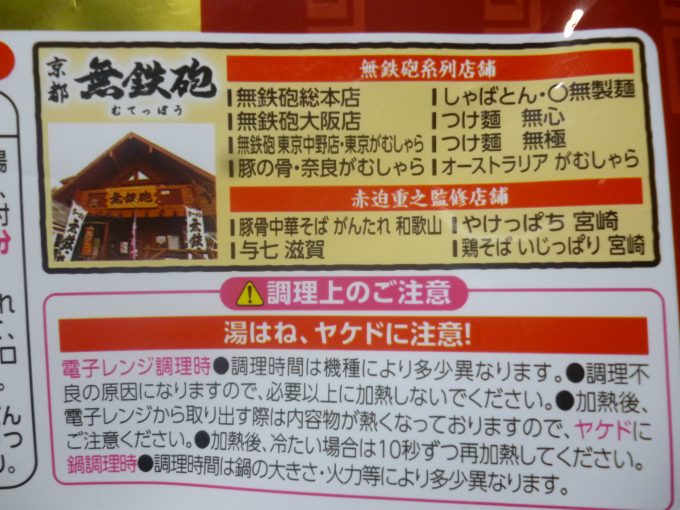 京都 無鉄砲
むてっぽう
無鉄砲
無鉄砲系列店舗
無鉄砲総本店
無鉄砲大阪店
無鉄砲 東京中野店・東京がむしゃら
豚の骨・奈良がむしゃら
しゃばとん・〇無製麺
つけ麺 無心
つけ麺 無極
オーストラリア がむしゃら
赤迫重之監修店舗
豚骨中華そば がんたれ 和歌山
与七 滋賀
やけっぱち 宮崎
鶏そば いじっぱり 宮崎
調理上のご注意
湯はね、ヤケドに注意!
電子レンジ調理時●調理時間は機種により多少異なります。●調理不
良の原因になりますので、必要以上に加熱しないでください。●加熱後、
電子レンジから取り出す際は内容物が熱くなっておりますので、ヤケドに
ご注意ください。●加熱後、冷たい場合は10秒ずつ再加熱してください。
鍋調理時●調理時間は鍋の大きさ・火力等により多少異なります。